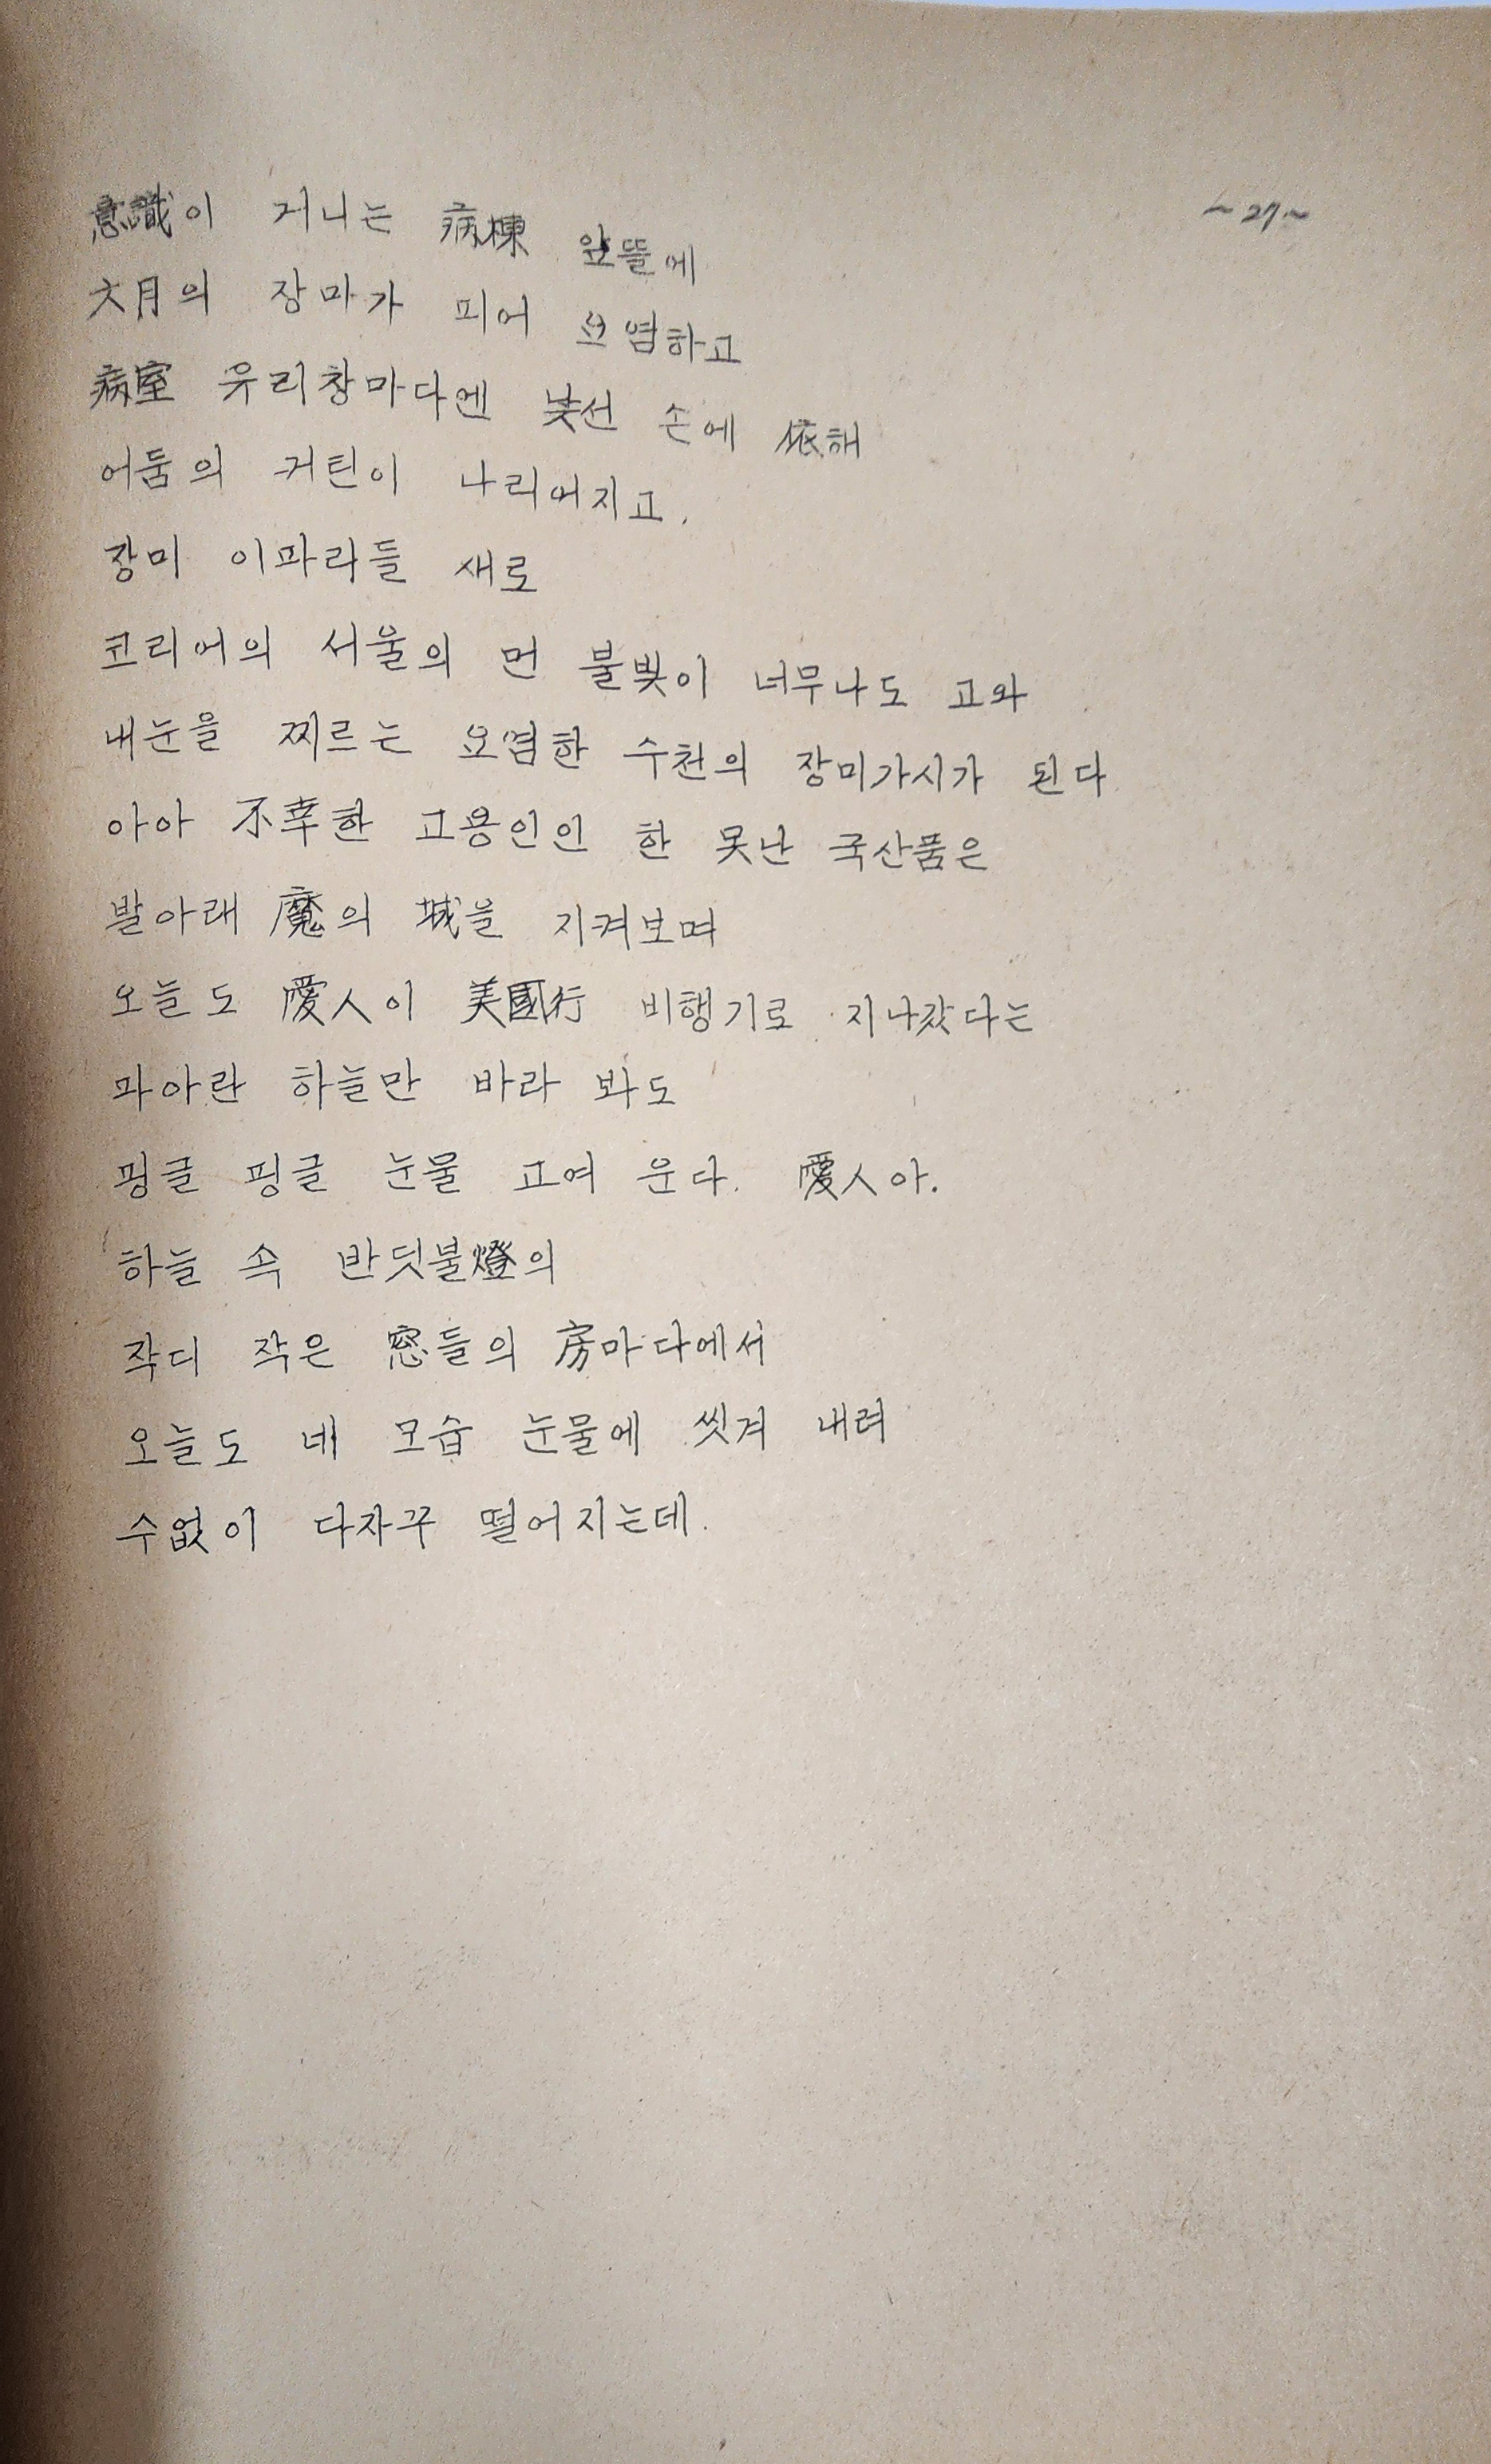 ~27~
意識이 거니는 病棟 앞뜰에
六月의 장마가 피어 요염하고
病室 유리창마다엔 낯선 손에 依해
어둠의 커틴이 나리어지고,
장미 이파리들 새로
코리어의 서울의 먼 불빛이 너무나도 고와
내눈을 찌르는 요염한 수천의 장미가시가 된다
아아 不幸한 고용인인 한 못난 국산품은
발아래 魔의 城을 지켜보며
오늘도 愛人이 美國行 비행기로 지나갔다는
파아란 하늘만 바라 봐도
핑글 핑글 눈물 고여 운다. 愛人아.
하늘 속 반딧불燈의
작디 작은 窓들의 房마다에서
오늘도 네 모습 눈물에 씻겨 내려
수없이 다자꾸 떨어지는데.